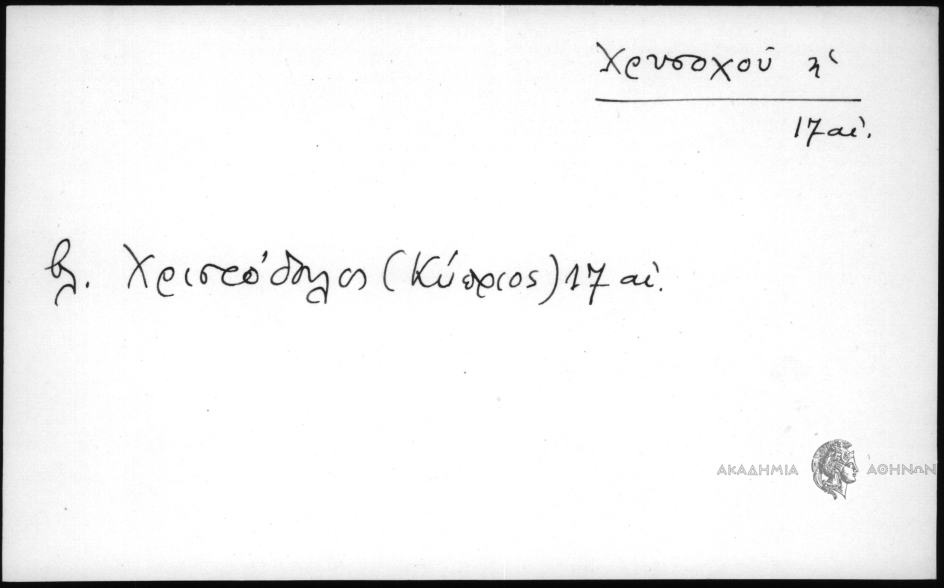 Χρυσοχοῦ ἡ
17 αἰ.
βλ. Χριστόδουλος (Κύπριος) 17 αἰ.
ΑΚΑΔΗΜΙΑ ΑΘΗΝΩΝ